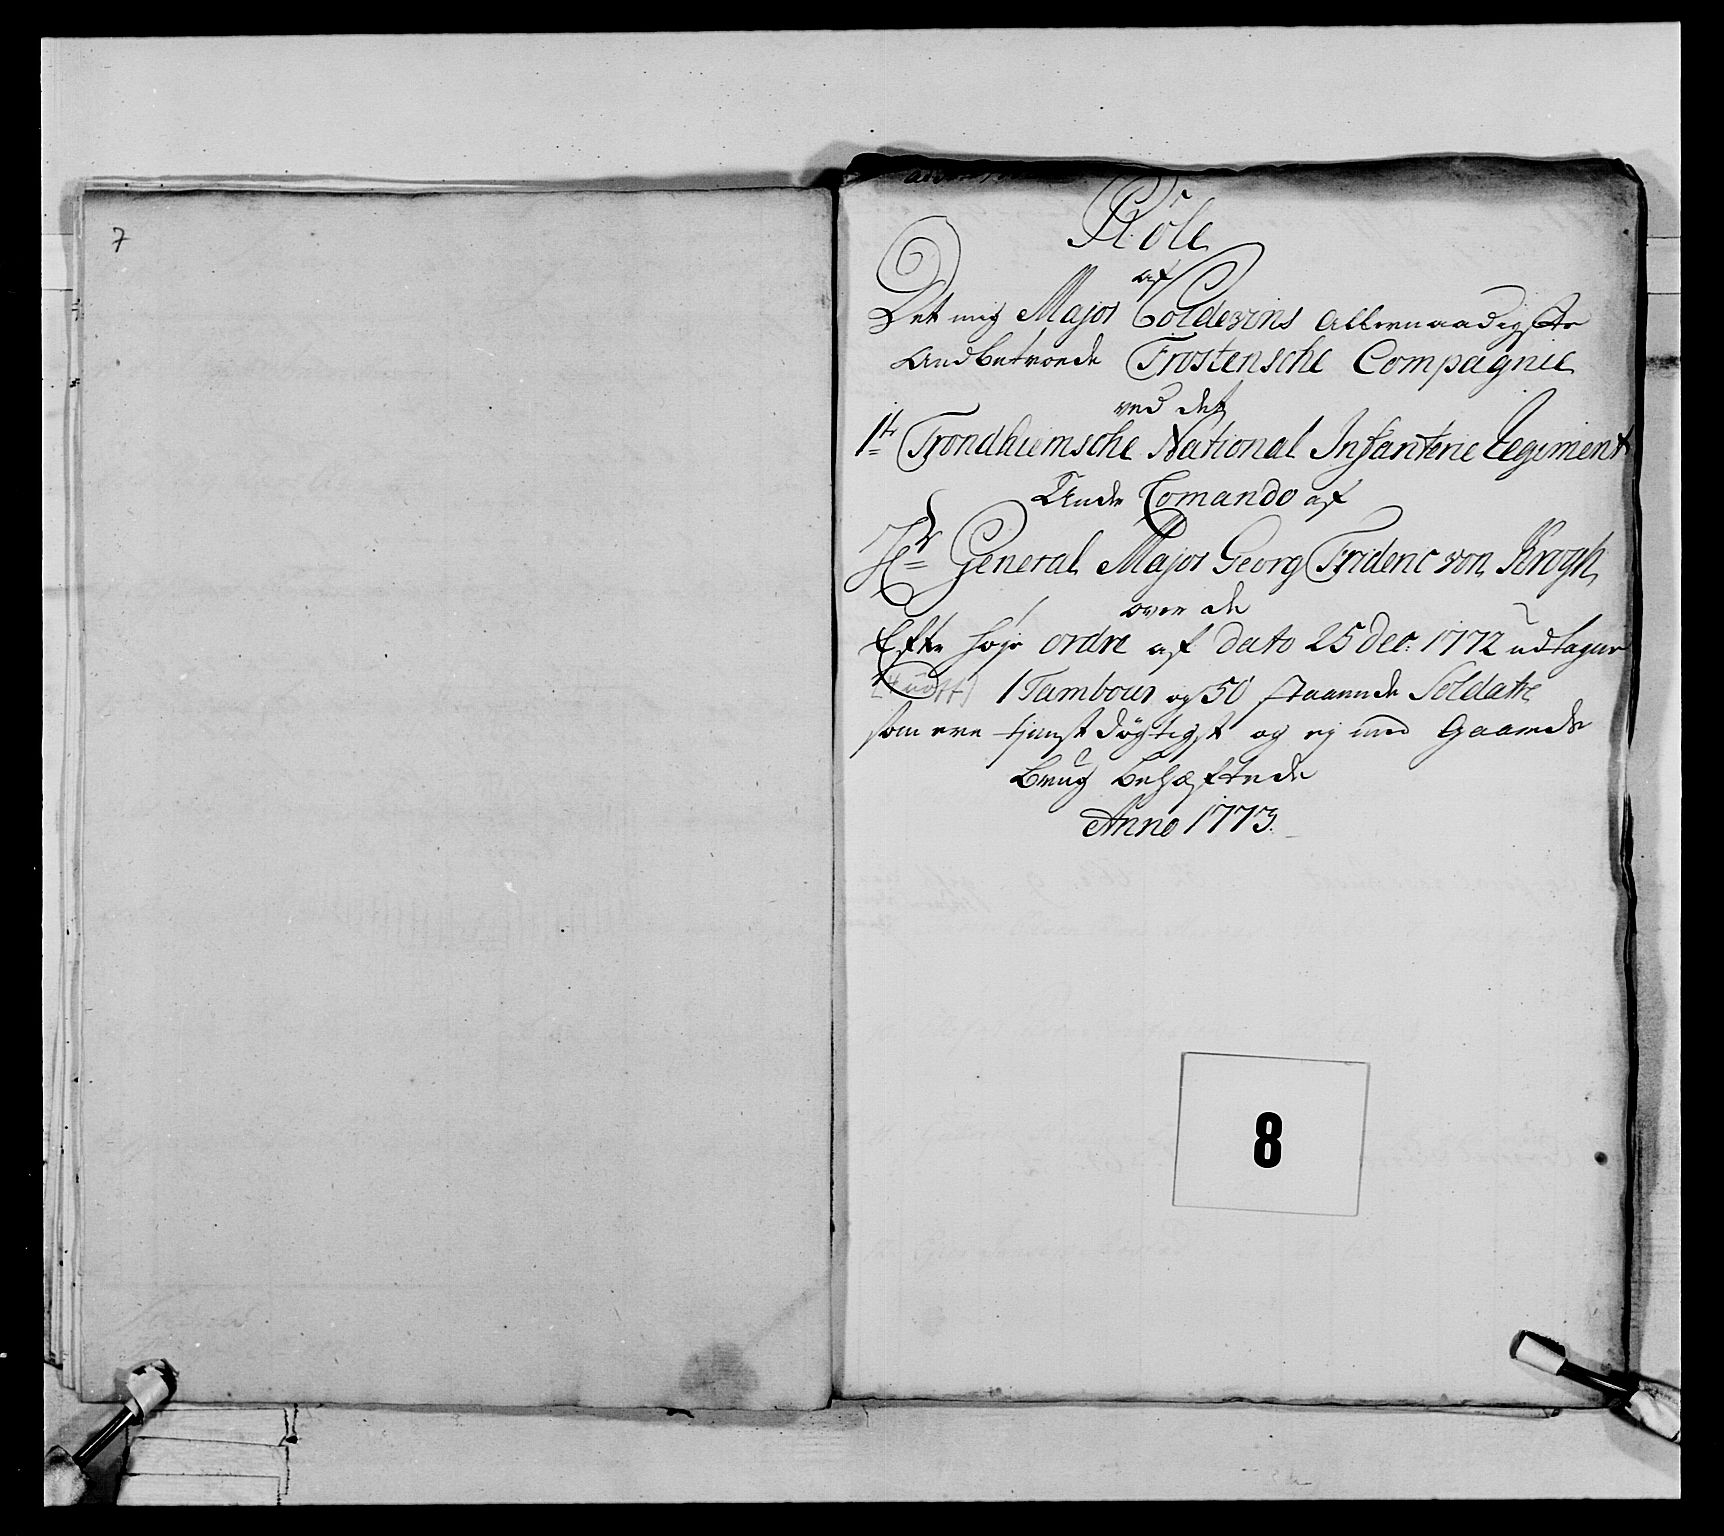 7
Rôle
af
Det mig Major Coldevins Allernaadigste
Andbetroede Frostensche Compagnie
ved det
1te Trondhiemsche National Infanterie Regiment
Under Comando af
Hr General Major Georg Frideric von Krogh
over de
Efter høje ordre af dato 25 Dec: 1772 udtagne
1 Tambour og 50 staaende Soldater
som ere tjenstdøgtigst og ej med Gaarde
Brug behæftede
Anno 1773.
8